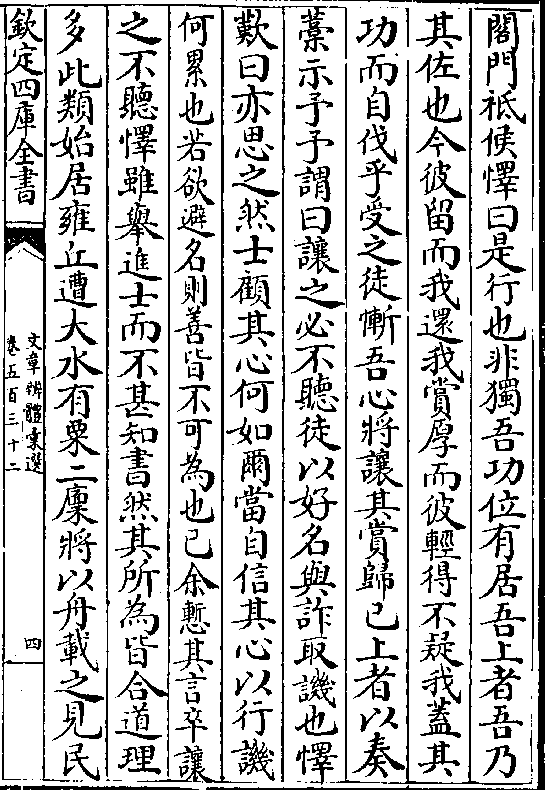 閤門祗使懌曰是行也非獨吾功位有居吾上者吾乃
其佐也今彼留而我還我賞厚而彼輕得不疑我蓋其
功而自伐乎受之徒慚吾心將讓其賞歸已上者以奏
藁示予予謂曰讓之必不聽徒以好名與詐取譏也懌
歎曰亦思之然士顧其心何如爾當自信其心以行譏
何累也若欲避名則善皆不可為也已余慙其言卒讓
之不聽懌雖舉進士而不甚知書然其所為皆合道理
多此類始居雍丘遭大水有粟二廩將以舟載之見民
欽定四庫全書
文章辨體彚選
卷五百三十二
四